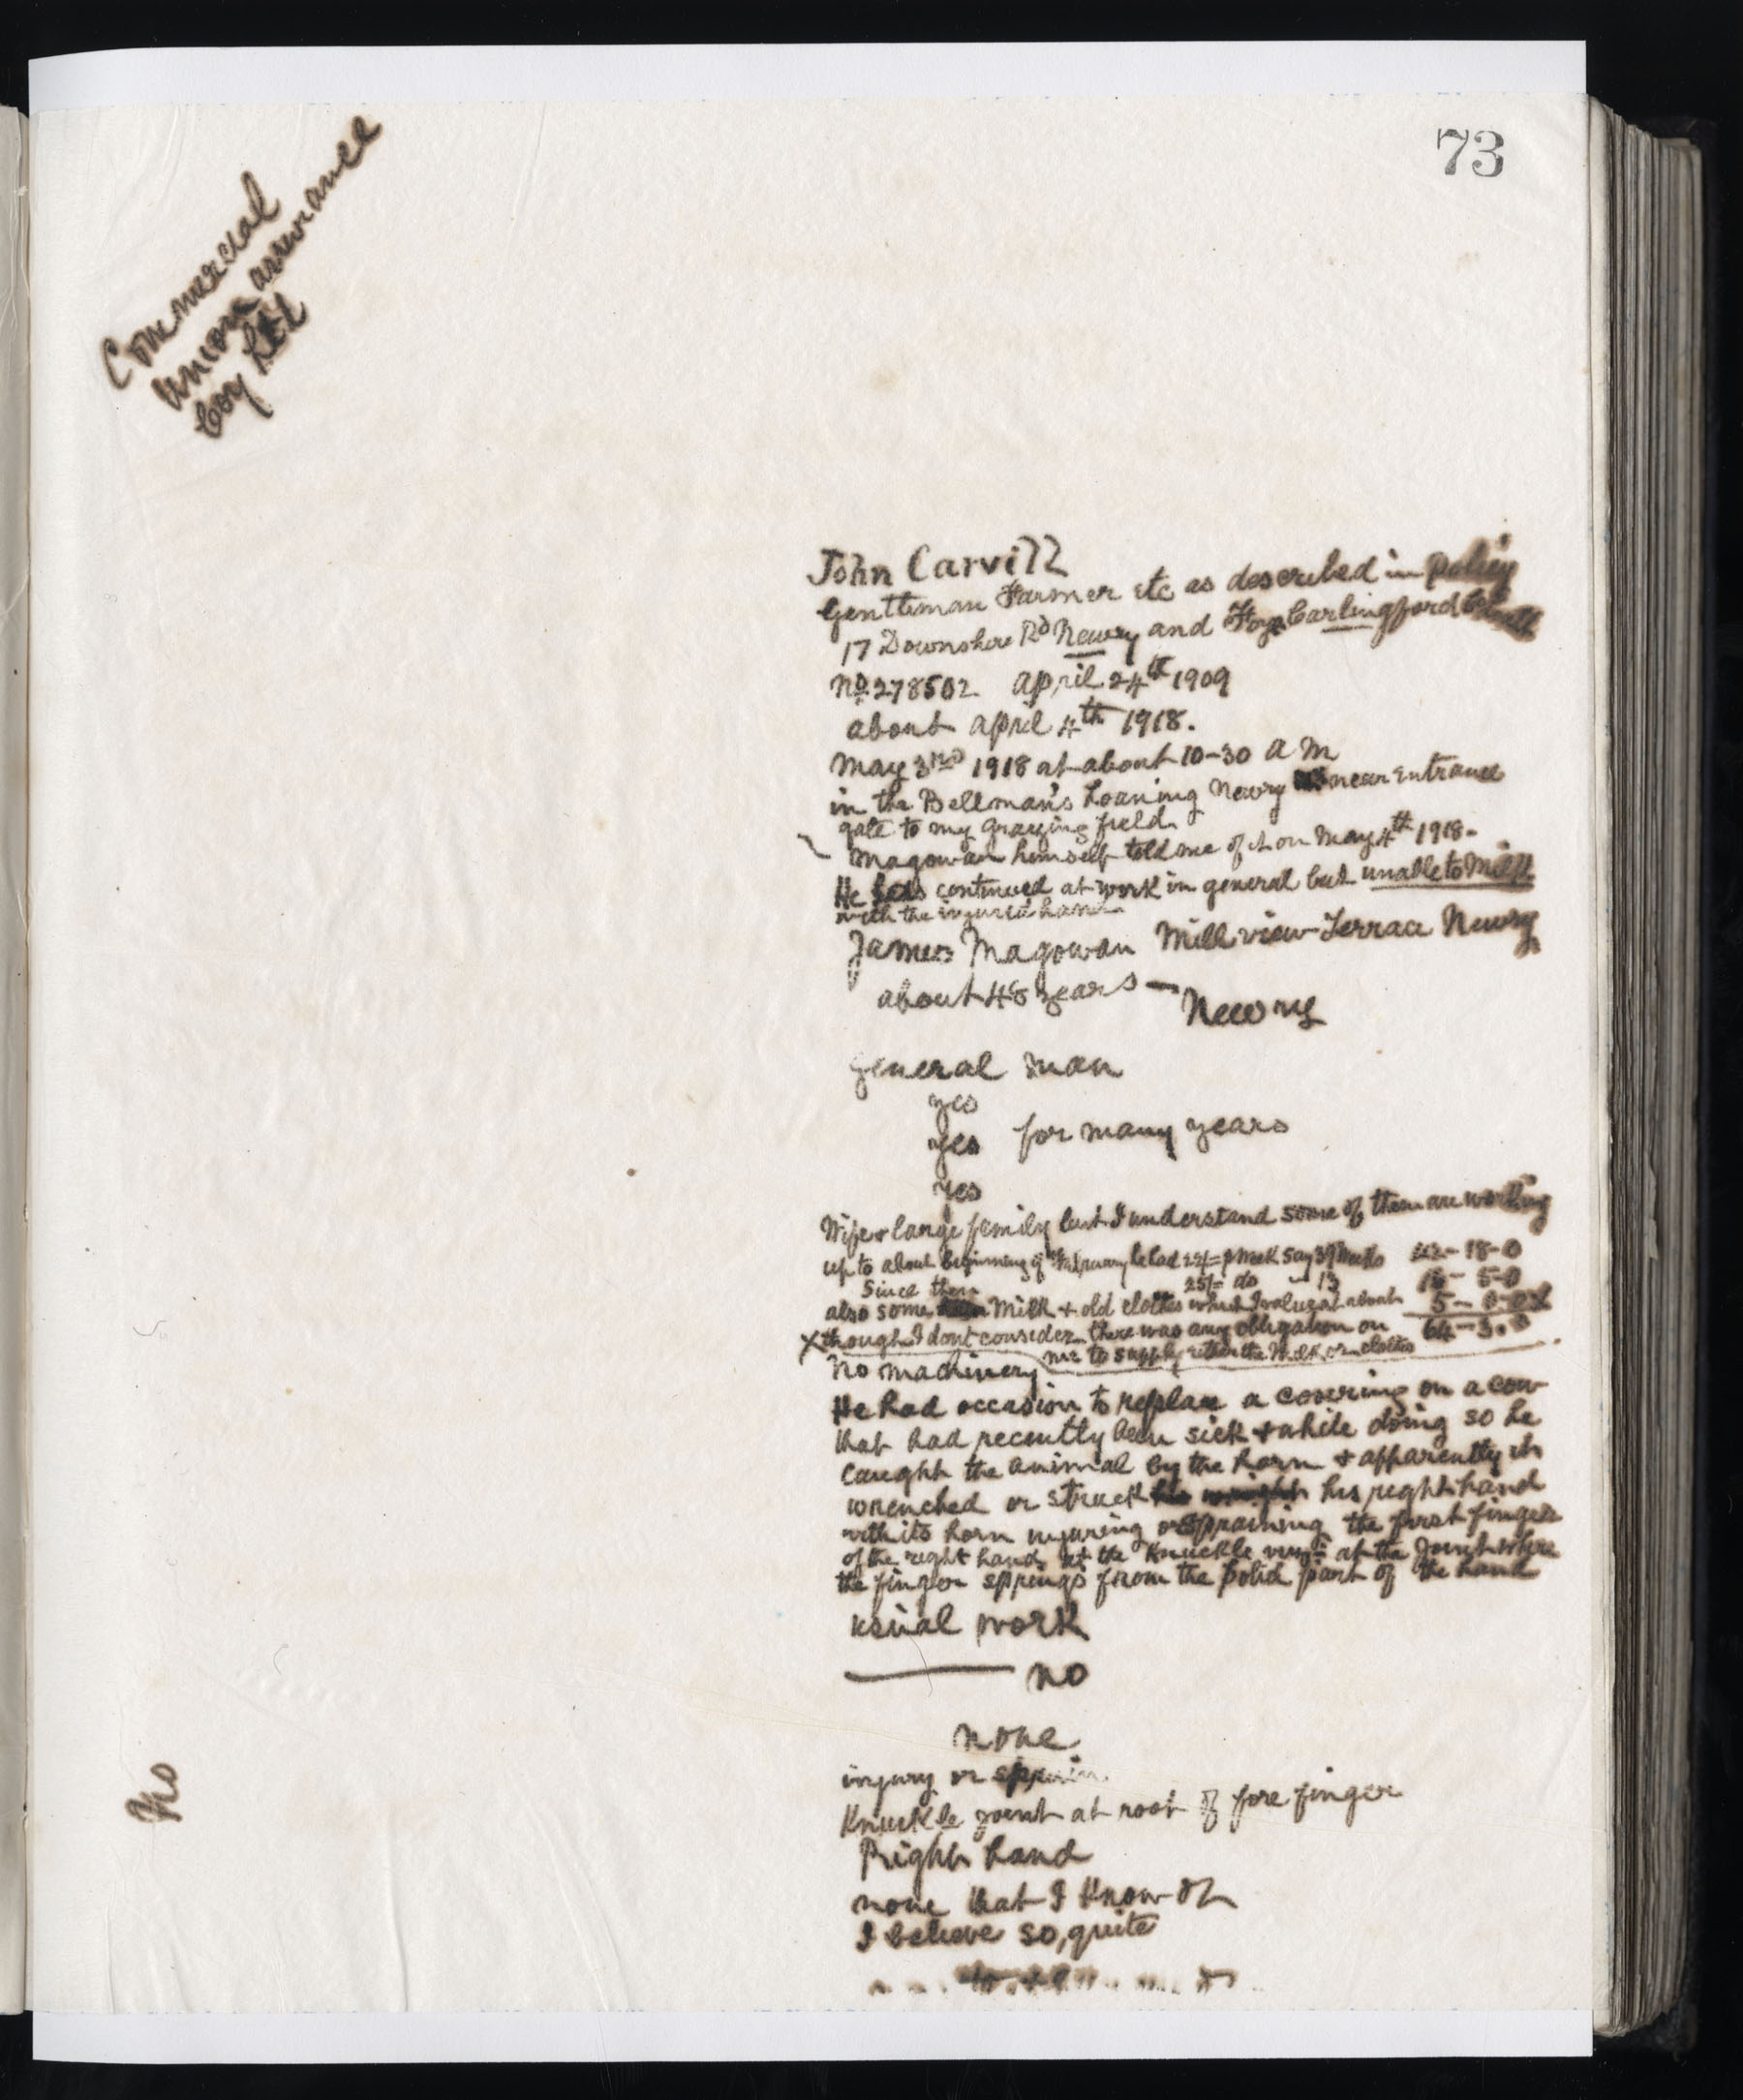 73
Commercial
Union assurance
Coy Ltd
John Carvill
Gentleman Farmer etc as described in policy
17 Downshire Rd Newry and Carlingford
No 278502 April 24th 1909
about april 4th 1918.
May 3rd 1918 at about 10-30 a m
in the Bellman's Loaning Newry near entrance
gate to my grazing field
Magowan himself told me of it on May 4th 1918-
He has continued at work in general but unable to Milk
with the injured hand
James Magowan Mill view Terrace Newry
about 48 years —
Newry
general man
yes
yes for many years
yes
Wife & large family but I understand some of them are working
up to about beginning of February he had 22/= p week say 39 weeks 42-18-0
Since then 25/= do - 13 16-5-0
also some Milk & old clothes which I value at about 5-0-0 X
X though I dont consider there was any obligation on 64-3.0
me to supply either the Milk or clothes
No machinery
He had occasion to replace a covering on a cow
that had recently been sick & while doing so he
caught the animal by the horn & apparently it
wrenched or struck his right hand
with its horn injuring or spraining the first finger
of the right hand at the Knuckle at the joint where
the finger springs from the solid part of the hand
usual work
— no
none
injury or sprain
Knuckle joint at root of fore finger
Right hand
none that I know of
I believe so, quite
No